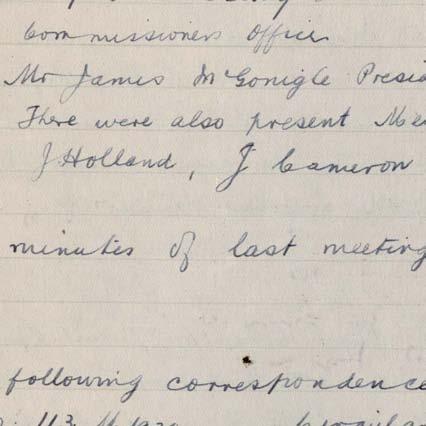 Commissioners Office
Mr James McGonigle Presid
There were also present Me
J Holland, J Cameron
minutes of last meeting
following correspondence